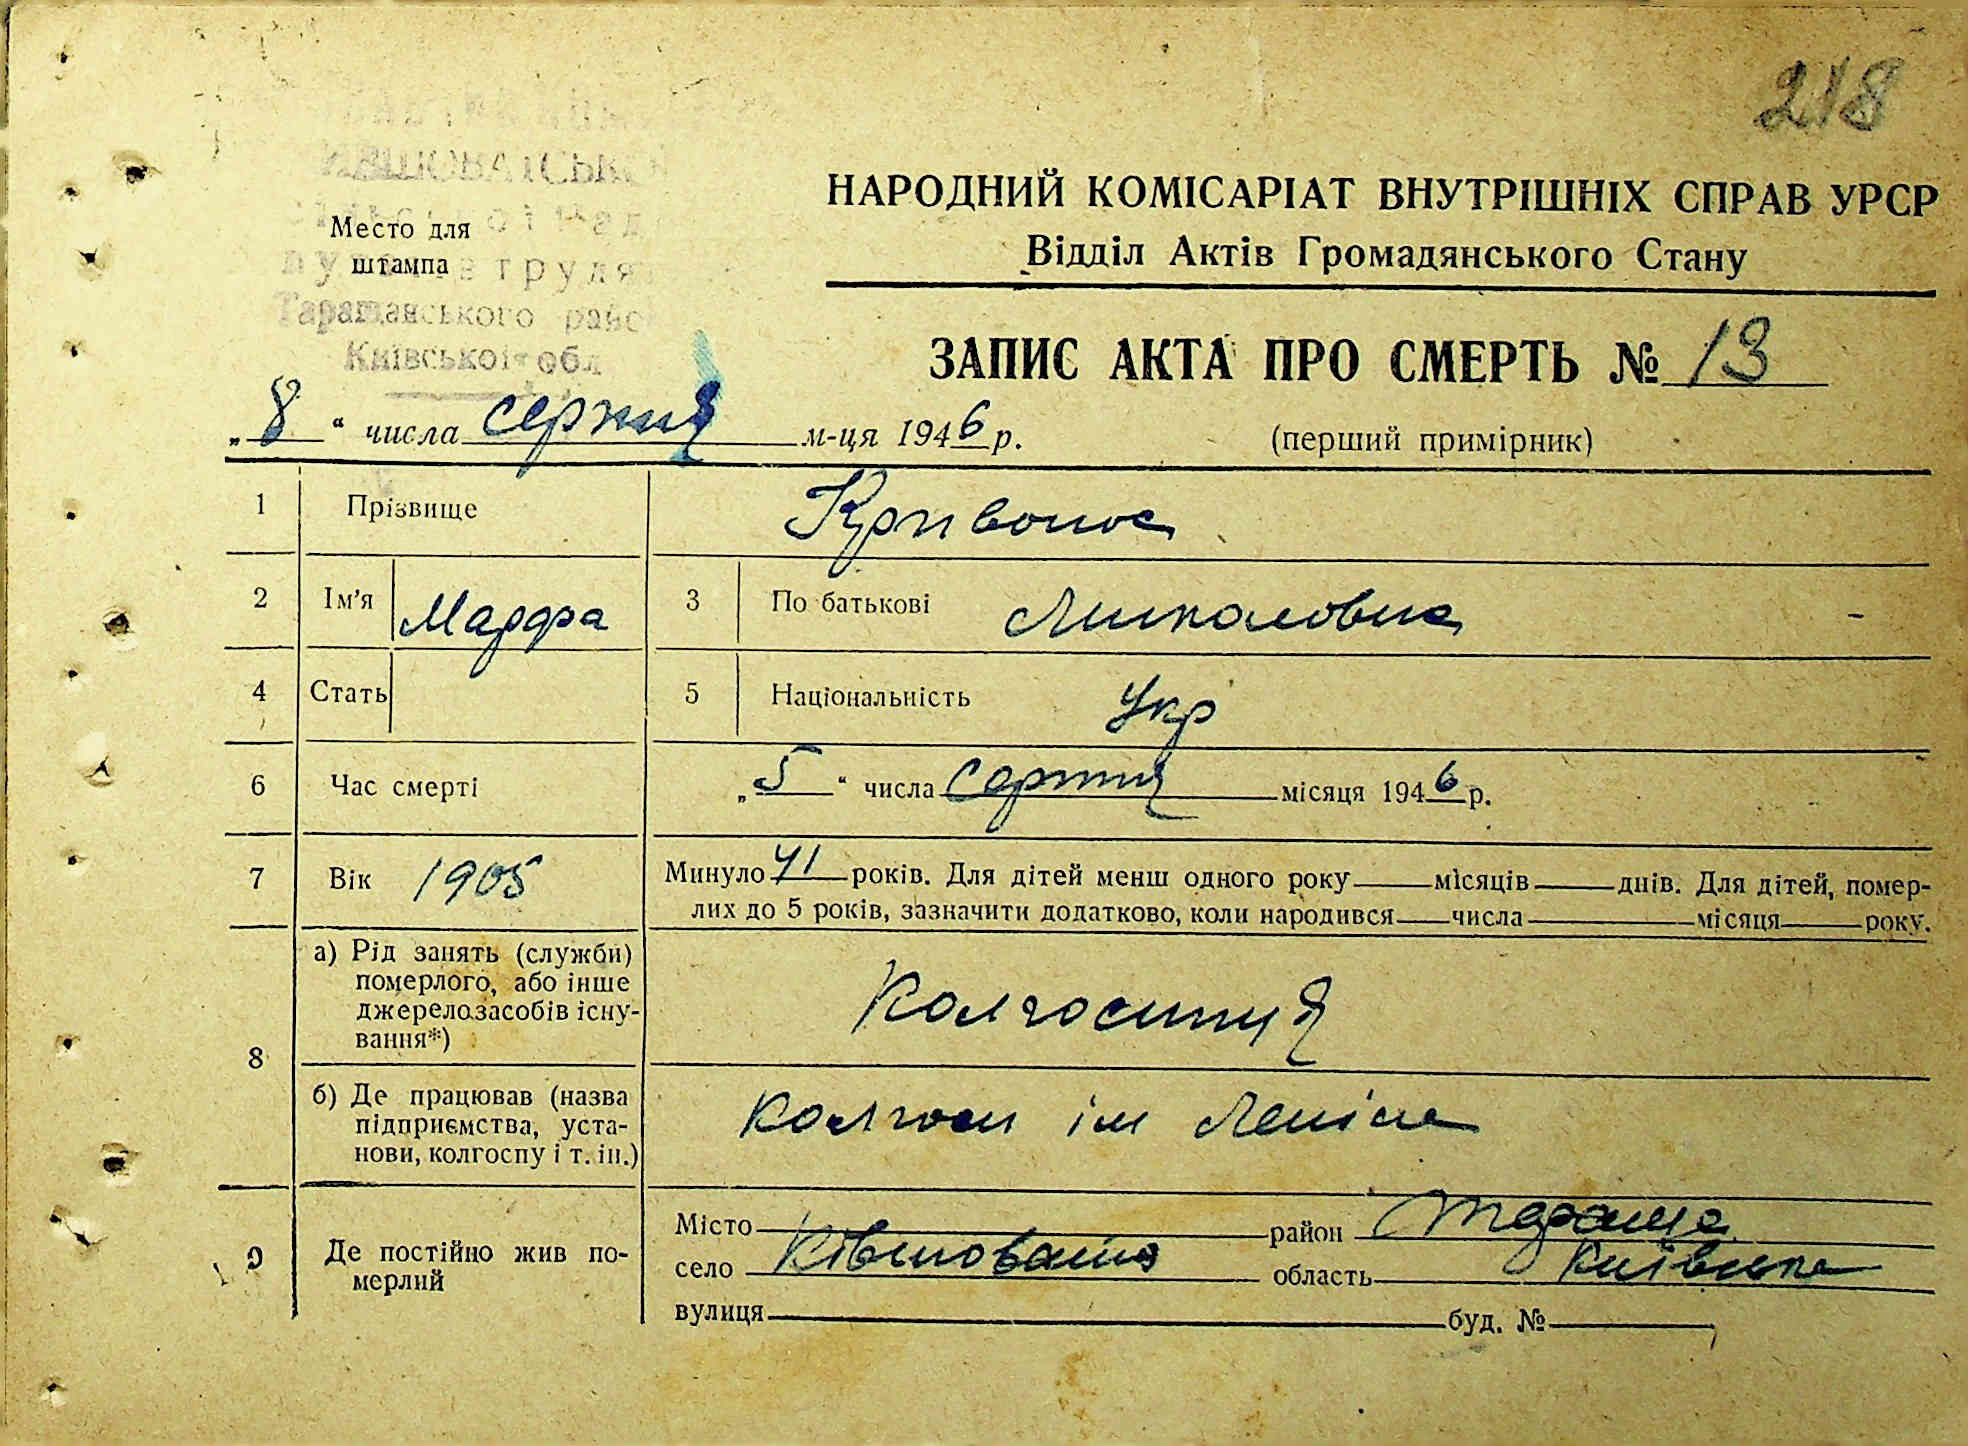 218
КІВШОВАТСЬКА
Таращанського райо
Київської обл
Место для
штампа
НАРОДНИЙ КОМІСАРІАТ ВНУТРІШНІХ СПРАВ УРСР
Відділ Актів Громадянського Стану
ЗАПИС АКТА ПРО СМЕРТЬ № 13
„8“ числа серпня м-ця 1946 р.
(перший примірник)
1 Прізвище Кривонос
2 Ім'я Марфа 3 По батькові Миколовна
4 Стать 5 Національність Укр
6 Час смерті „5“ числа Серпня місяця 1946 р.
7 Вік 1905 Минуло 41 років. Для дітей менш одного року місяців днів. Для дітей, помер-
лих до 5 років, зазначити додатково, коли народився числа місяця року.
8 а) Рід занять (служби)
померлого, або інше
джерело засобів існу-
вання*)
Колгоспниця
б) Де працював (назва
підприємства, уста-
нови, колгоспу і т. ін.)
колгосп ім Леніна
9 Де постійно жив по-
мерлий
Місто район Тараща
село Ківшовата область Київська
вулиця буд. №